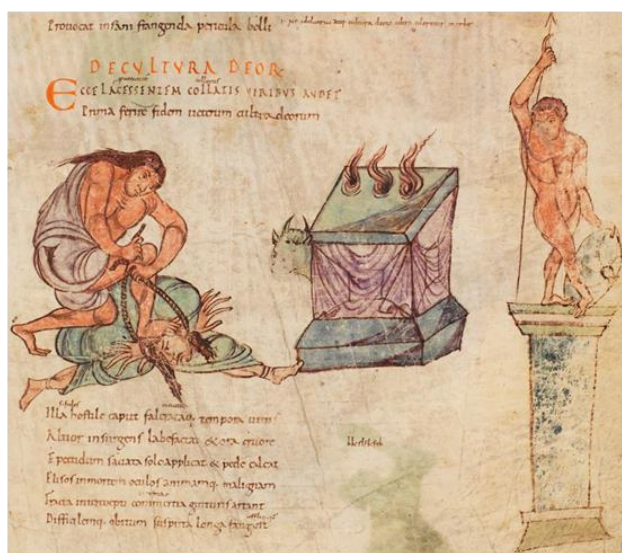 Prouocat insani frangenda pericula belli
DE CVLTVRA DEOR
ECCE LACESSENTEM COLLATIS VIRIBUS AVDET
Prima ferire fidem ueterum cultura deorum
Illa hostile caput falerataq; tempora uittis
Altior insurgens labefactat & ora cruore
E pecudum saciata solo applicat & pede calcat
Elisos inmortem oculos animamq; malignam
Fracta intercepti commercia gutturis artant
Difficilemq; obitum suspiria longa fatigant